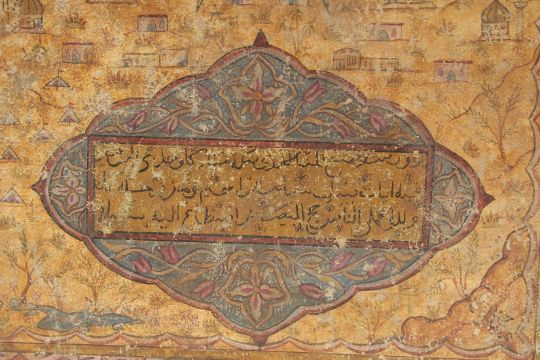 ان اول بيت وضع للناس للذي ببكة مباركا وهدى للعالمين
فيه ايات بينات مقام ابراهيم ومن دخله كان امنا
و لله على الناس حج البيت من استطاع اليه سبيلا